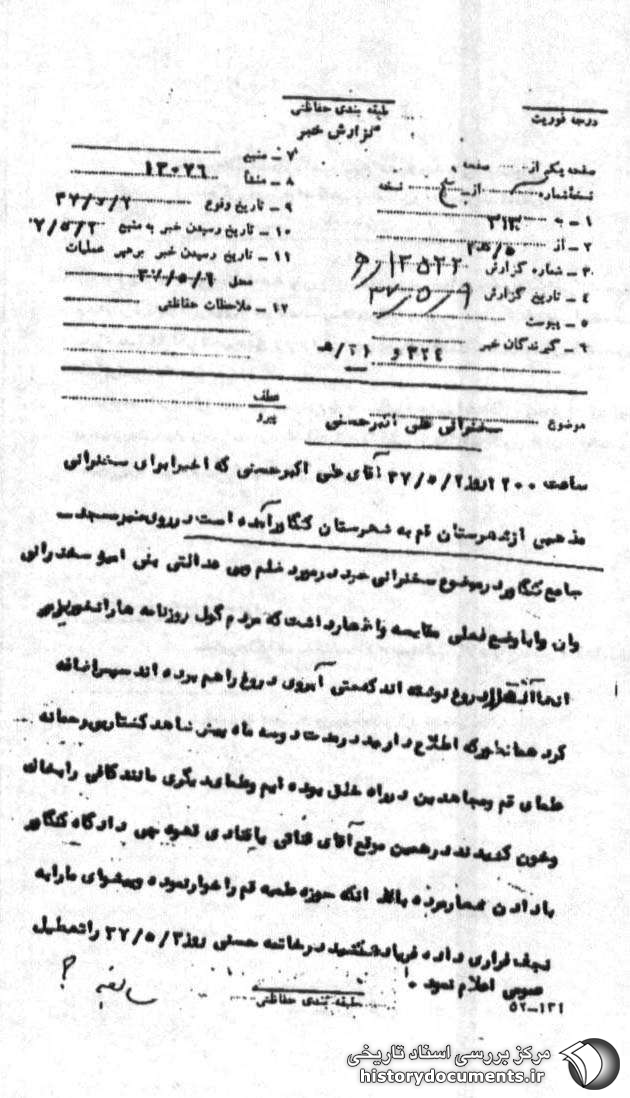 درجه فوریت
طبقه بندی حفاظتی
گزارش خبر
صفحه یکم از صفحه
نسخه شماره از نسخه
۱ - به ۳۱۲
۲ - از
۳ - شماره گزارش
۴ - تاریخ گزارش ۳۷/۵/۹
۵ - پیوست
۶ - گیرندگان خبر ۳۲۴ و
۷ - منبع ۱۳۰۷۶
۸ - منشأ
۹ - تاریخ وقوع
۱۰ - تاریخ رسیدن خبر به منبع
۱۱ - تاریخ رسیدن خبر برهبر عملیات
محل
۱۲ - ملاحظات حفاظتی
موضوع سخنرانی علی اکبر حسنی
عطف
پیرو
ساعت روز آقای علی اکبر حسنی که اخیرا برای سخنرانی
مذهبی از شهرستان قم به شهرستان کنگاور آمده است در روی منبر مسجد
جامع کنگاور در موضوع سخنرانی خود در مورد ظلم وبی عدالتی بنی امیه سخنرانی
وان را با وضع فعلی مقایسه واظهار داشت که مردم گول روزنامه ها را نخورید
انها دروغ نوشته اند که حتی آبروی دروغ را هم برده اند سپس اضافه
کرد همانطور که اطلاع دارید در مدت دو سه ماه پیش شاهد کشتار بی رحمانه
علمای قم ومجاهدین در راه خلق بوده ایم وعلمای دیگری مانند کافی را بخاک
وخون کشیدند در همین موقع آقای قهوه چی دادگاه کنگاور
با دادن شعار مرده باد انکه حوزه علمیه قم را خوار نموده وپیشوای ما را به
نجف فراری داده فریاد کشید در خاتمه حسنی روز را تعطیل
عمومی اعلام نمود ۰
طبقه بندی حفاظتی
۵۲-۱۳۱
سابقه ؟
مرکز بررسی اسناد تاریخی
historydocuments.ir